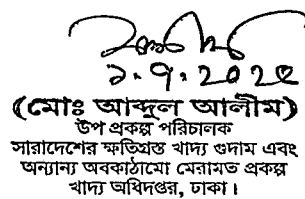 ২.৭.২০২৫
(মোঃ আব্দুল আলীম)
উপ প্রকল্প পরিচালক
সারাদেশের ক্ষতিগ্রস্ত খাদ্য গুদাম এবং
অন্যান্য অবকাঠামো মেরামত প্রকল্প
খাদ্য অধিদপ্তর, ঢাকা।